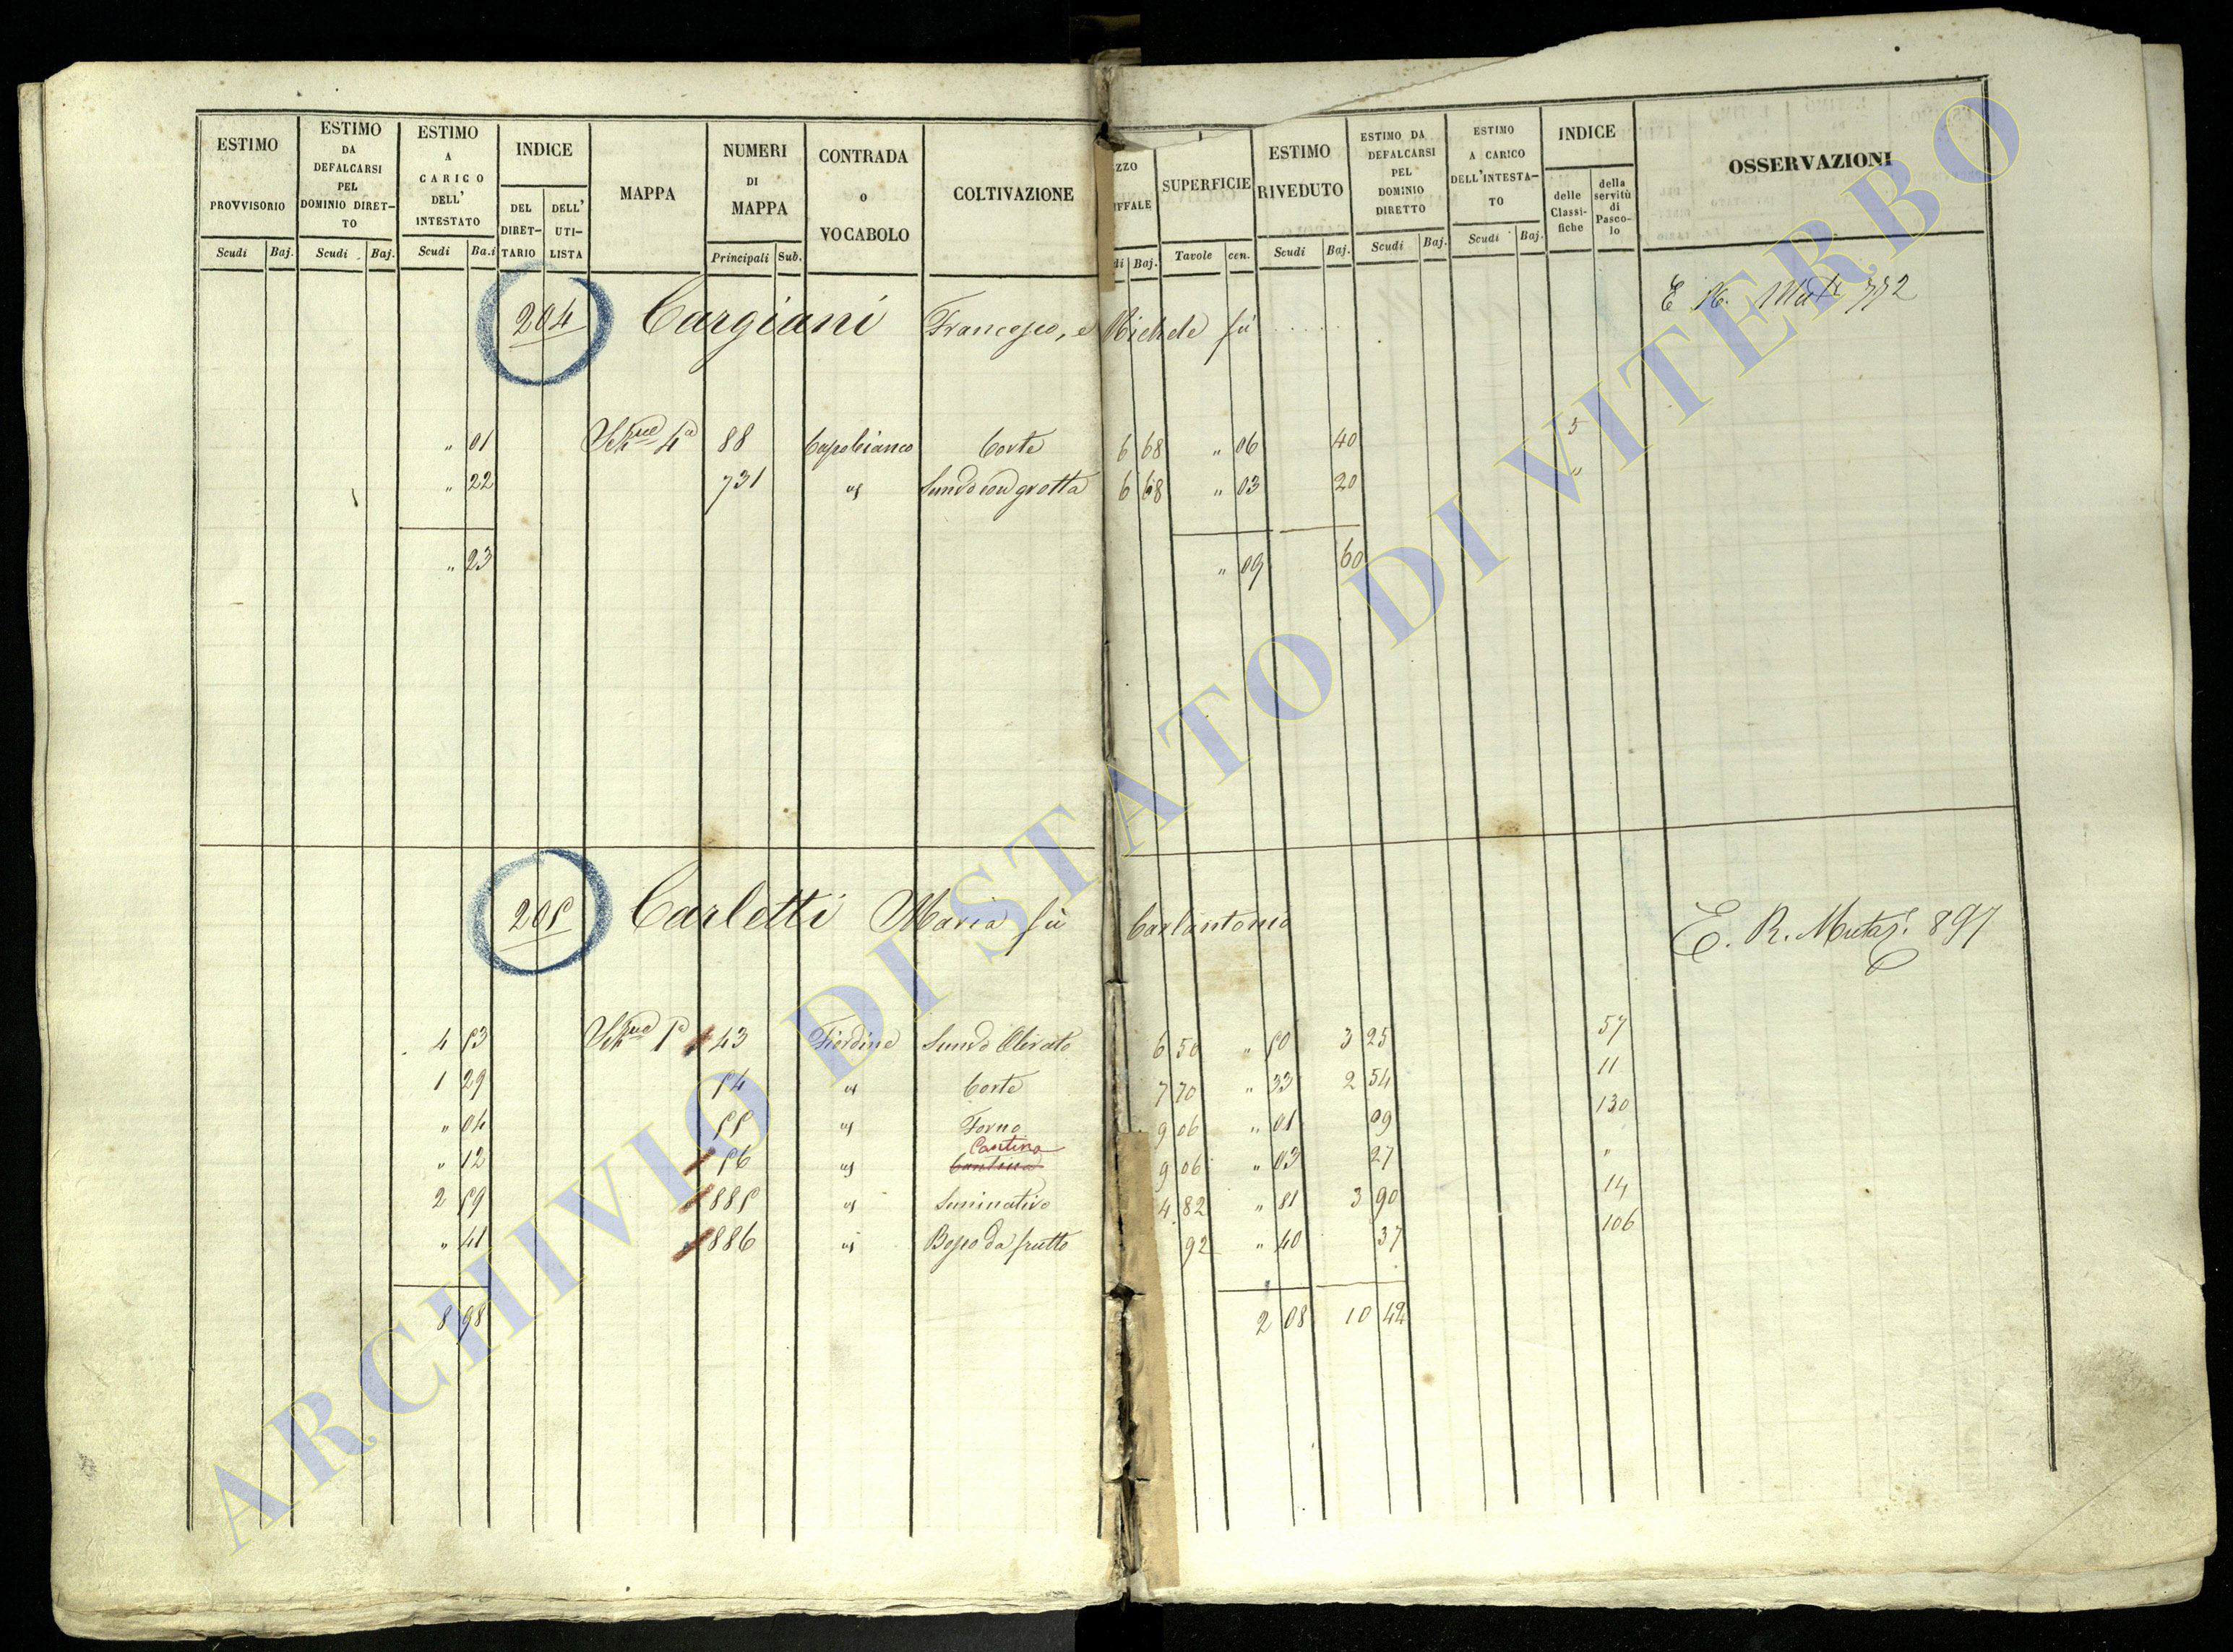 ESTIMO PROVVISORIO
Scudi Baj.
ESTIMO DA DEFALCARSI PEL DOMINIO DIRET-TO
Scudi Baj.
ESTIMO A CARICO DELL' INTESTATO
Scudi Ba.i
INDICE
DEL DIRET-TARIO
DELL' UTI-LISTA
MAPPA
NUMERI DI MAPPA
Principali Sub.
CONTRADA o VOCABOLO
COLTIVAZIONE
ZZO
IFFALE
di Baj.
SUPERFICIE
Tavole cen.
ESTIMO RIVEDUTO
Scudi Baj.
ESTIMO DA DEFALCARSI PEL DOMINIO DIRETTO
Scudi Baj.
ESTIMO A CARICO DELL'INTESTA-TO
Scudi Baj.
INDICE
delle Classi-fiche
della servitù di Pasco-lo
OSSERVAZIONI
204 Cargiani Francesco, e Michele fù ..... E R. 772
" 01 4ª 88 Capobianco Corte 6 68 " 06 40 5
" 22 731 " con grotta 6 68 " 03 20 "
" 23 " 09 60
205 Carletti Maria fù Carlantonio E. R. Mutaz. 897
4 53 1ª 43 Fiordine Olivato 6 50 " 50 3 25 57
1 29 54 " Corte 7 70 " 33 2 54 11
" 04 55 " Forno 9 06 " 01 09 130
Cantina
" 12 56 " Cantina 9 06 " 03 27 "
2 59 885 " Seminativo 4 82 " 81 3 90 14
" 41 886 " Bosco da frutto 92 " 40 37 106
8 98 2 08 10 42
ARCHIVIO DI STATO DI VITERBO